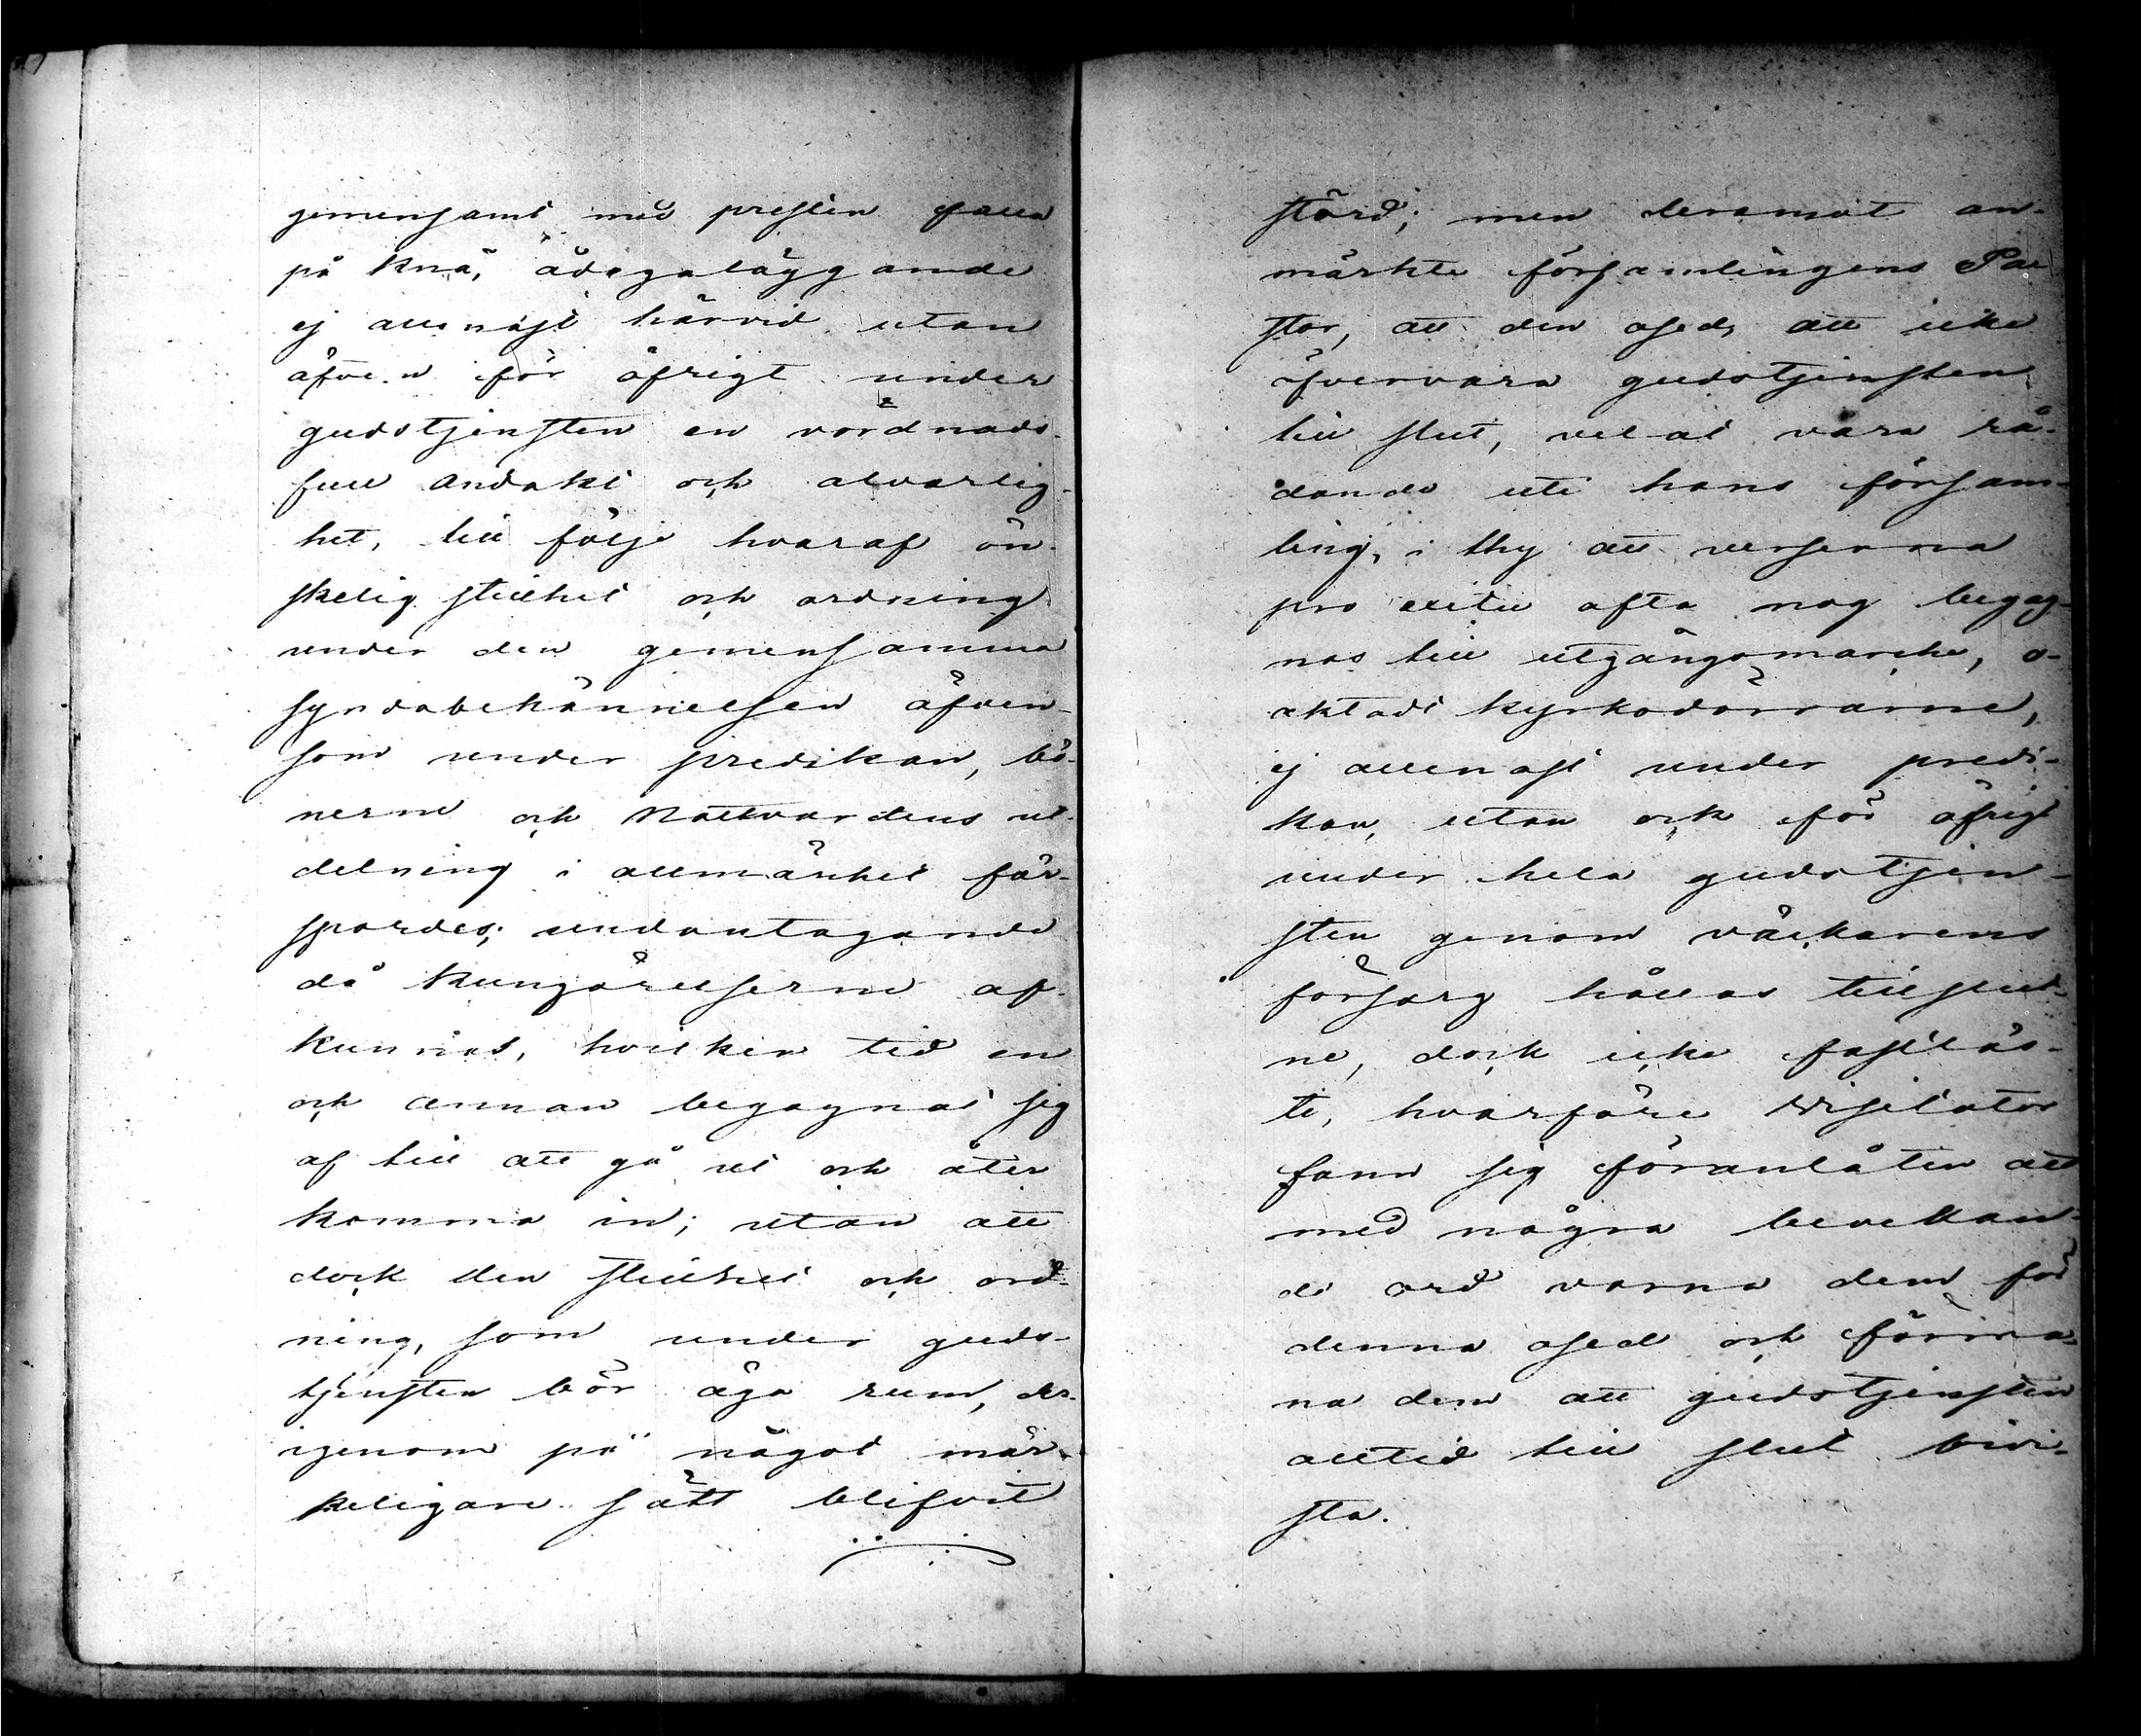 gemensamt med presten falla
på knä, ådagaläggande
ej allenast härvid utan
äfven för öfrigt under
gudstjensten en vördnads-
full andakt och alvarlig-
het, till följe hvaraf ön-
skelig stillhet och ordning
under den gemensamma
syndabekännelsen äfven-
som under predikan, bö-
nerne och Nattvardens ut-
delning i allmänhet för-
spordes; undantagande
då Kungörelserne af-
kunnas, hvilken tid en
och annan begagnat sig
af till att gå ut och åter
komma in; utan att
dock den stillhet och ord-
ning, som under guds-
tjensten bör äga rum, der-
igenom på något mär-
keligare sätt blifvit
störd; men deremot an-
märkte församlingens Pa-
stor, att den osed, att icke
öfvervara gudstjensten
till slut, velat vara rå-
dande uti hans försam-
ling, i thy att verserna
pro exitu ofta nog begag-
nas till utgångsmarche, o-
aktadt kyrkodörrarne,
ej allenast under predi-
kan, utan ock för öfrigt
under hela gudstjen-
sten genom väckarens
försorg hållas tillslut-
ne, dock icke fastlås-
te, hvarföre Visitator
fann sig föranlåten att
med några bevekan-
de ord varna dem för
denna osed och förma-
na dem att gudstjensten
alltid till slut bevi-
sta.